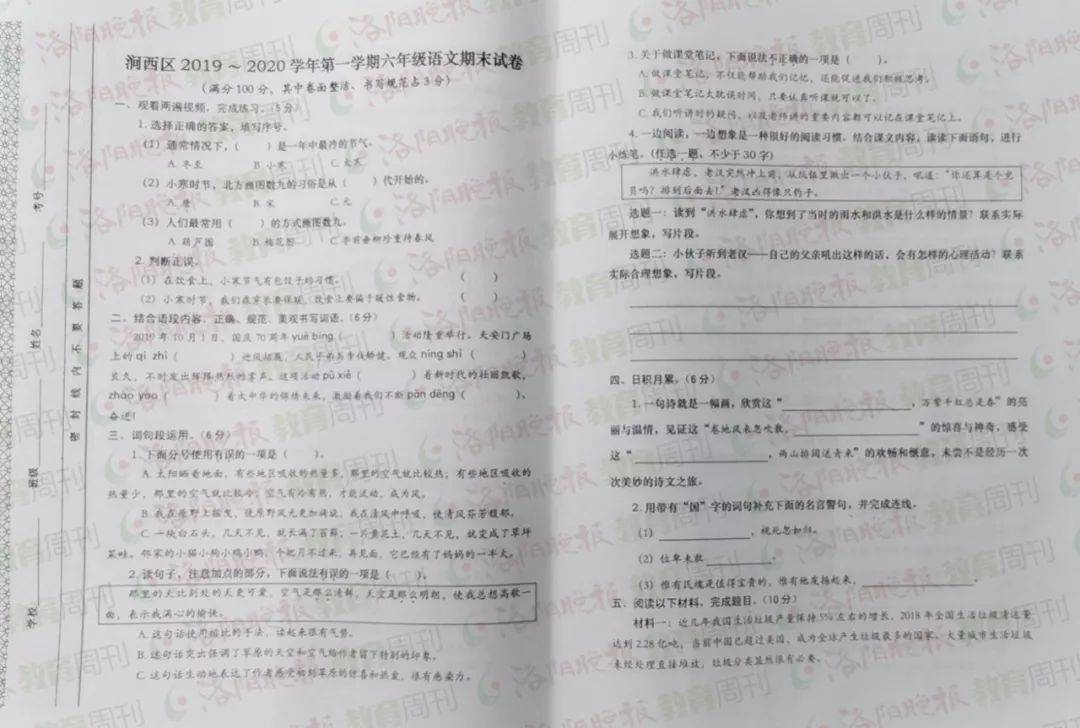 涧西区 2019 ~ 2020 学年第一学期六年级语文期末试卷
（满分 100 分，其中卷面整洁、书写规范占 3 分）
一、观看两遍视频，完成练习。（5 分）
1. 选择正确的答案，填写序号。
（1）通常情况下，（ ）是一年中最冷的节气。
A. 冬至 B. 小寒 C. 大寒
（2）小寒时节，北方画图数九的习俗是从（ ）代开始的。
A. 唐 B. 宋 C. 元
（3）人们最常用（ ）的方式画图数九。
A. 葫芦图 B. 梅花图 C. 亭前垂柳珍重待春风
2. 判断正误。
（1）在饮食上，小寒节气有包饺子的习惯。 （ ）
（2）小寒时节，我们在穿衣要保暖，饮食上要偏于暖性食物。 （ ）
二、结合语段内容，正确、规范、美观书写词语。（6 分）
2019 年 10 月 1 日，国庆 70 周年 yuè bīng（ ）活动隆重举行。天安门广场
上的 qí zhì（ ）迎风招展，人民子弟兵步伐矫健。观众 níng shì（ ）
良久，不时发出阵阵热烈的掌声。这项活动 pǔ xiě（ ）着新时代的壮丽凯歌，
zhào yào（ ）着大中华的锦绣未来，激励着我们不断 pān dēng（ ），
奋进！
三、词句段运用。（6 分）
1. 下面分号使用有误的一项是（ ）。
A. 太阳晒着地面，有些地区吸收的热量多，那里的空气就比较热；有些地区吸收的
热量少，那里的空气就比较冷；空气有冷有热，才能流动，成为风。
B. 我在原野上摇曳，使原野风光更加旖旎；我在清风中呼吸，使清风芬芳馥郁。
C. 一块白石头，几天不见，就长满了苔藓；一片黄泥土，几天不见，就变成了草坪
菜畦。邻家的小猫小狗小鸡小鸭，个把月不过来，再见面，它已经有了妈妈的一半大。
2. 读句子，注意加点的部分，下面说法有误的一项是（ ）。
那里的天比别处的天更可爱，空气是那么清鲜，天空是那么明朗，使我总想高歌一
曲，表示我满心的愉快。
A. 这句话使用排比的手法，读起来很有气势。
B. 这句话突出强调了草原的天空和空气给作者留下特别的印象。
C. 这句话生动地表达了作者感受初到草原的惊喜和热爱，很有感染力。
考号
姓名
班级
学校
密封线内不要答题
3. 关于做课堂笔记，下面说法不正确的一项是（ ）。
A. 做课堂笔记，不仅能帮助我们记忆，还能促进我们积极思考。
B. 做课堂笔记太耽误时间，只要认真听课就可以了。
C. 我们听讲时的疑问，以及老师讲的重要内容都可以记在课堂笔记上。
4. 一边阅读，一边想象是一种很好的阅读习惯。结合课文内容，读读下面语句，进行
小练笔。（任选一题，不少于 30 字）
洪水肆虐，老汉突然冲上前，从队伍里揪出一个小伙子，吼道：“你还算是个党
员吗？排到后面去！”老汉凶得像只豹子。
选题一：读到“洪水肆虐”，你想到了当时的雨水和洪水是什么样的情景？联系实际
展开想象，写片段。
选题二：小伙子听到老汉——自己的父亲吼出这样的话，会有怎样的心理活动？联系
实际合理想象，写片段。
四、日积月累。（6 分）
1. 一句诗就是一幅画，欣赏这“ ，万紫千红总是春”的亮
丽与温情，见证这“卷地风来忽吹散， ”的惊喜与神奇，感受
这“ ，两山排闼送青来”的欢畅和惬意，未尝不是经历一次
次美妙的诗文之旅。
2. 用带有“国”字的词句补充下面的名言警句，并完成连线。
（1） ，视死忽如归。
（2）位卑未敢
（3）惟有民魂是值得宝贵的，惟有他发扬起来， 。
五、阅读以下材料，完成题目。（10 分）
材料一：近几年我国生活垃圾产量保持 5% 左右的增长，2018 年全国生活垃圾清运量
达到 2.28 亿吨，当前中国已超过美国，成为全球产生垃圾最多的国家。大量城市生活垃圾
未经处理直接堆放，垃圾分类显然很有必要。
洛阳晚报 教育周刊